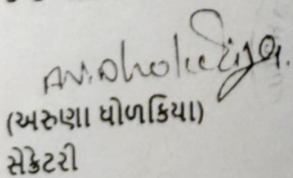 A.V. Dholakiya.
(અરુણા ધોળકિયા)
સેક્રેટરી